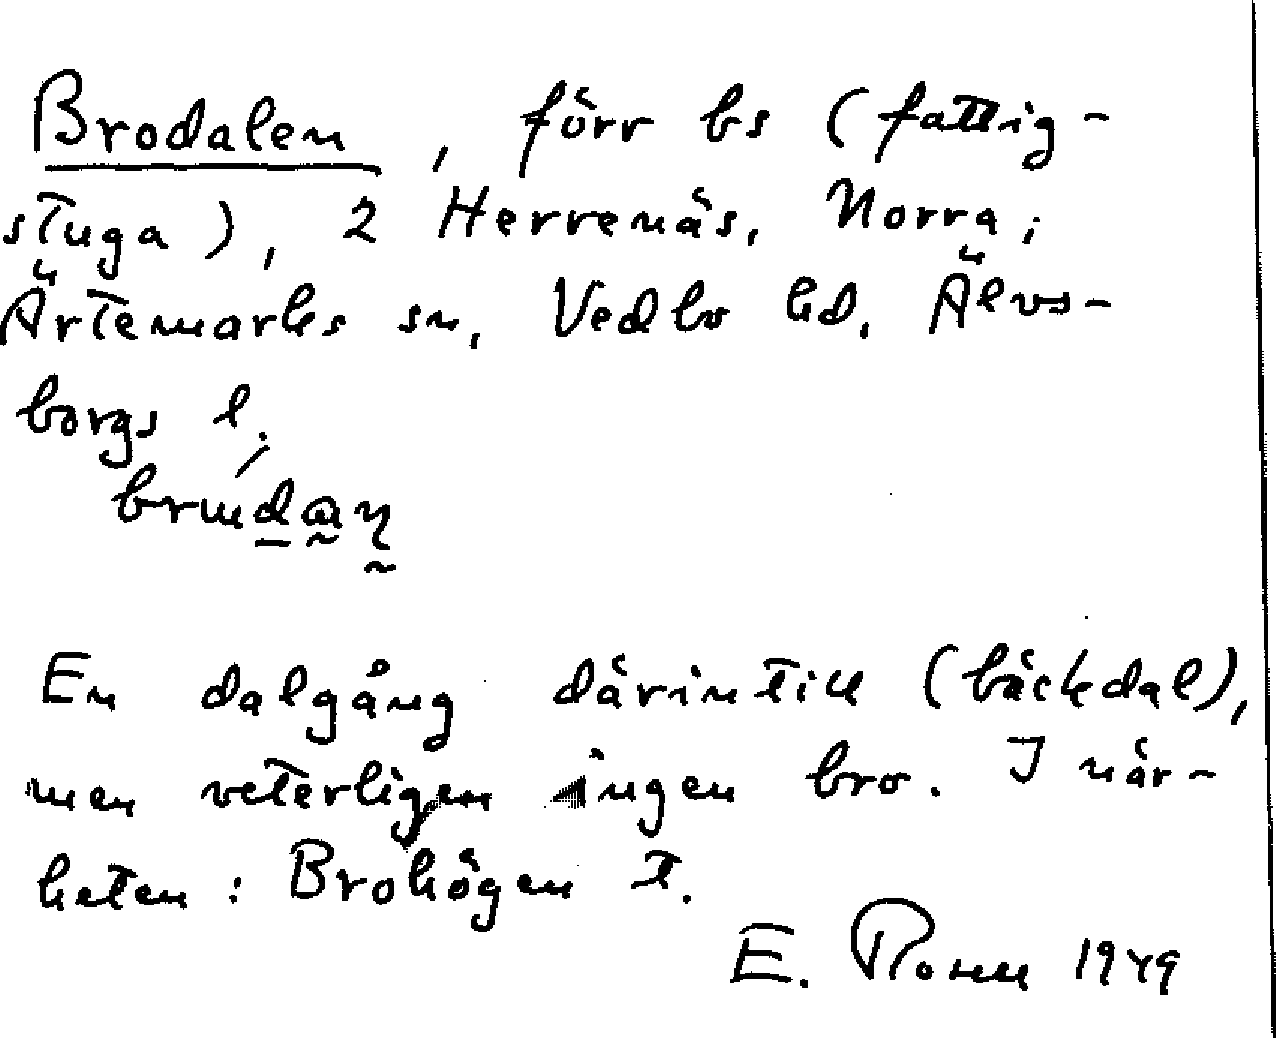 Brodalen, förr bs (fattig-
stuga), 2 Herrenäs, Norra;
Ärtemarks sn, Vedbo hd. Älvs-
borgs l.
En dalgång därintill (bäckdal),
men veterligen ingen bro. I när-
heten: Brohögen t.
E. 1949